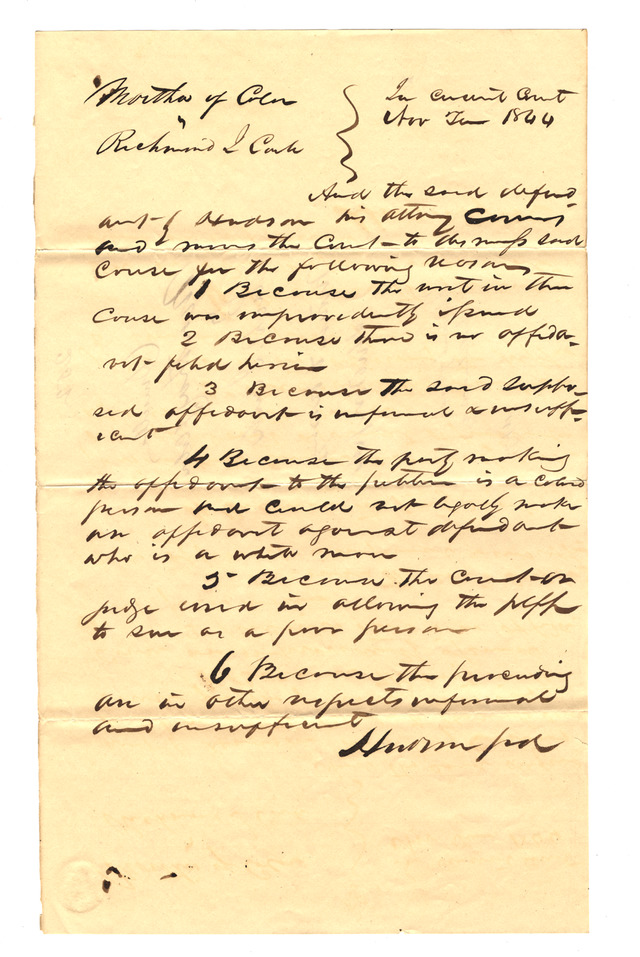 Martha of Color
vs
Richmond J Cark
In circuit Court
Nov Term 1844
And the said defend
ant by Hudson his attony comes
and moves the Court to dismiss said
cause for the following reasons
1 Because the writ in this
cause was improvidently issued
2 Because there is no affida-
vit filed herein
3 Because the said suppo-
sed affidavit is informal & insuffi-
cient
4 Because the party making
the affidavit to the petition is a cold
person and could not legally make
an affidavit against defendant
who is a white man
5 Because the court or
judge erred in allowing the plff
to sue as a poor person
6 Because the proceeding
are in other respects informal
and insufficient
Hudson pd